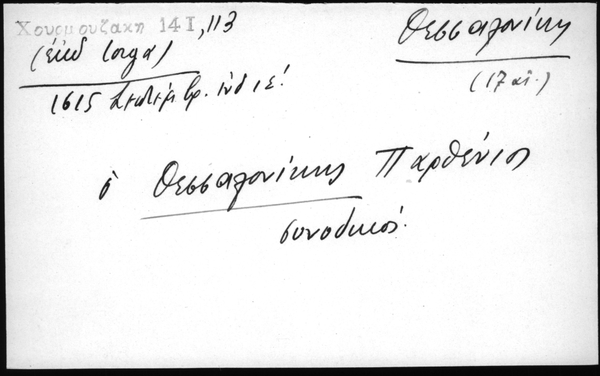 Χουρμουζακη 14 Ι, 113
(ἐκδ Iorga)
1615 Σεπτεμβρ. ἰνδ ιε!
Θεσσαλονίκης
(17 αἰ.)
ὁ Θεσσαλονίκης Παρθένιος
συνοδικοί.